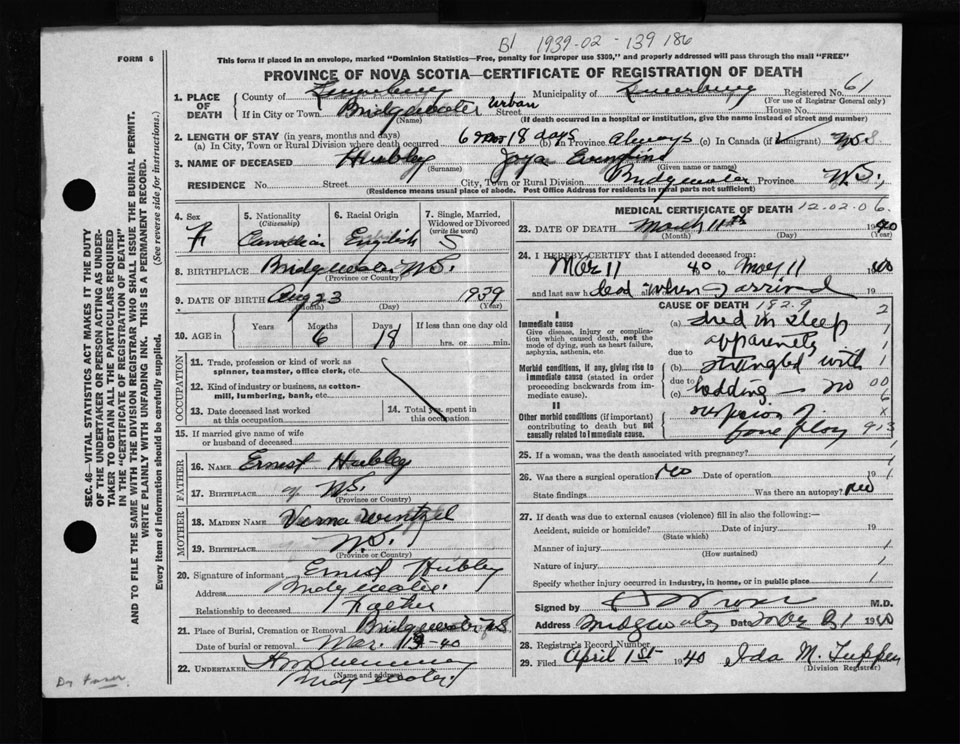 B1 1939-02-139186
FORM 6
This form if placed in an envelope, marked "Dominion Statistics—Free, penalty for improper use $300," and properly addressed will pass through the mail "FREE"
PROVINCE OF NOVA SCOTIA—CERTIFICATE OF REGISTRATION OF DEATH
1. PLACE OF DEATH
County of Lunenburg Municipality of Lunenburg Registered No. 61
(For use of Registrar General only)
If in City or Town Bridgewater Urban Street
(Name) (If death occurred in a hospital or institution, give the name instead of street and number)
2. LENGTH OF STAY (in years, months and days)
(a) In City, Town or Rural Division where death occurred 6 mos 18 days (b) in Province always (c) In Canada (if immigrant)
3. NAME OF DECEASED Hubley Joya
(Surname) (Given name or names)
RESIDENCE No. Street City, Town or Rural Division Bridgewater Province N.S.
(Residence means usual place of abode. Post Office Address for residents in rural parts not sufficient)
4. Sex F
5. Nationality (Citizenship) Canadian
6. Racial Origin English
7. Single, Married, Widowed or Divorced (write the word) S
8. BIRTHPLACE Bridgewater N.S.
(Province or Country)
9. DATE OF BIRTH Aug 23 1939
(Month) (Day) (Year)
10. AGE in Years Months 6 Days 18 If less than one day old hrs. or min.
OCCUPATION
11. Trade, profession or kind of work as spinner, teamster, office clerk, etc.
12. Kind of industry or business, as cotton-mill, lumbering, bank, etc.
13. Date deceased last worked at this occupation
14. Total yrs. spent in this occupation
15. If married give name of wife or husband of deceased
FATHER
16. NAME Ernest Hubley
17. BIRTHPLACE N.S.
(Province or Country)
MOTHER
18. MAIDEN NAME Verna Wentzel
19. BIRTHPLACE N.S.
(Province or Country)
20. Signature of informant Ernest Hubley
Address Bridgewater
Relationship to deceased Father
21. Place of Burial, Cremation or Removal Bridgewater N.S.
Date of burial or removal Mar. 13 1940
22. UNDERTAKER
(Name and address) Bridgewater
MEDICAL CERTIFICATE OF DEATH 12.02.06
23. DATE OF DEATH March 11th 1940
(Month) (Day) (Year)
24. I HEREBY CERTIFY that I attended deceased from:
Mar 11 40 to Mar 11 1940
and last saw h dead alive when I arrived
CAUSE OF DEATH 182.9
I
Immediate cause
Give disease, injury or complication which caused death, not the mode of dying, such as heart failure, asphyxia, asthenia, etc.
(a) died in sleep 2
apparently 1
due to
Morbid conditions, if any, giving rise to immediate cause (stated in order proceeding backwards from immediate cause).
(b) strangled with 1
due to
(c) bedding — no 00
6
II
Other morbid conditions (if important) contributing to death but not causally related to immediate cause.
suspicion of x
foul play 913
25. If a woman, was the death associated with pregnancy? 1
26. Was there a surgical operation? no Date of operation 19
State findings Was there an autopsy? no
27. If death was due to external causes (violence) fill in also the following:—
Accident, suicide or homicide? Date of injury 19
(State which)
Manner of injury 1
(How sustained)
Nature of injury 1
Specify whether injury occurred in industry, in home, or in public place 1
Signed by M.D.
Address Bridgewater Date 1940
28. Registrar's Record Number
29. Filed April 1st 1940 Ida M. Tupper
(Division Registrar)
SEC. 46—VITAL STATISTICS ACT MAKES IT THE DUTY
OF THE UNDERTAKER OR PERSON ACTING AS UNDER-
TAKER TO OBTAIN ALL THE PARTICULARS REQUIRED
IN THE "CERTIFICATE OF REGISTRATION OF DEATH"
AND TO FILE THE SAME WITH THE DIVISION REGISTRAR WHO SHALL ISSUE THE BURIAL PERMIT.
WRITE PLAINLY WITH UNFADING INK. THIS IS A PERMANENT RECORD.
Every item of information should be carefully supplied. (See reverse side for instructions.)